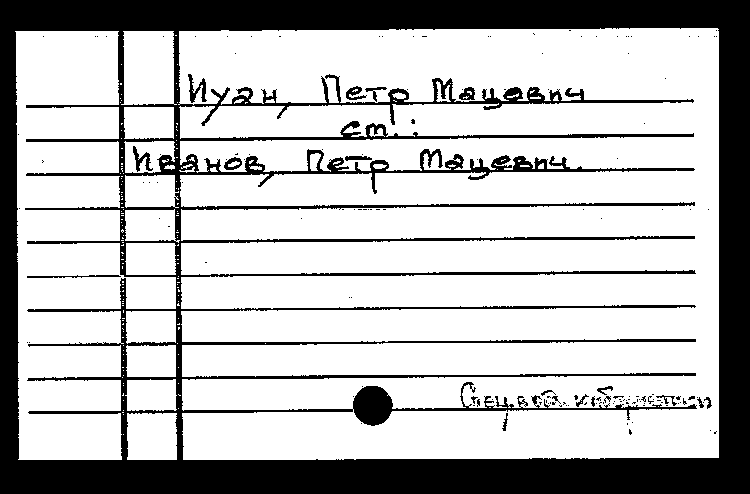 Иуан, Петр Мацевич
см.:
Иванов, Петр Мацевич.